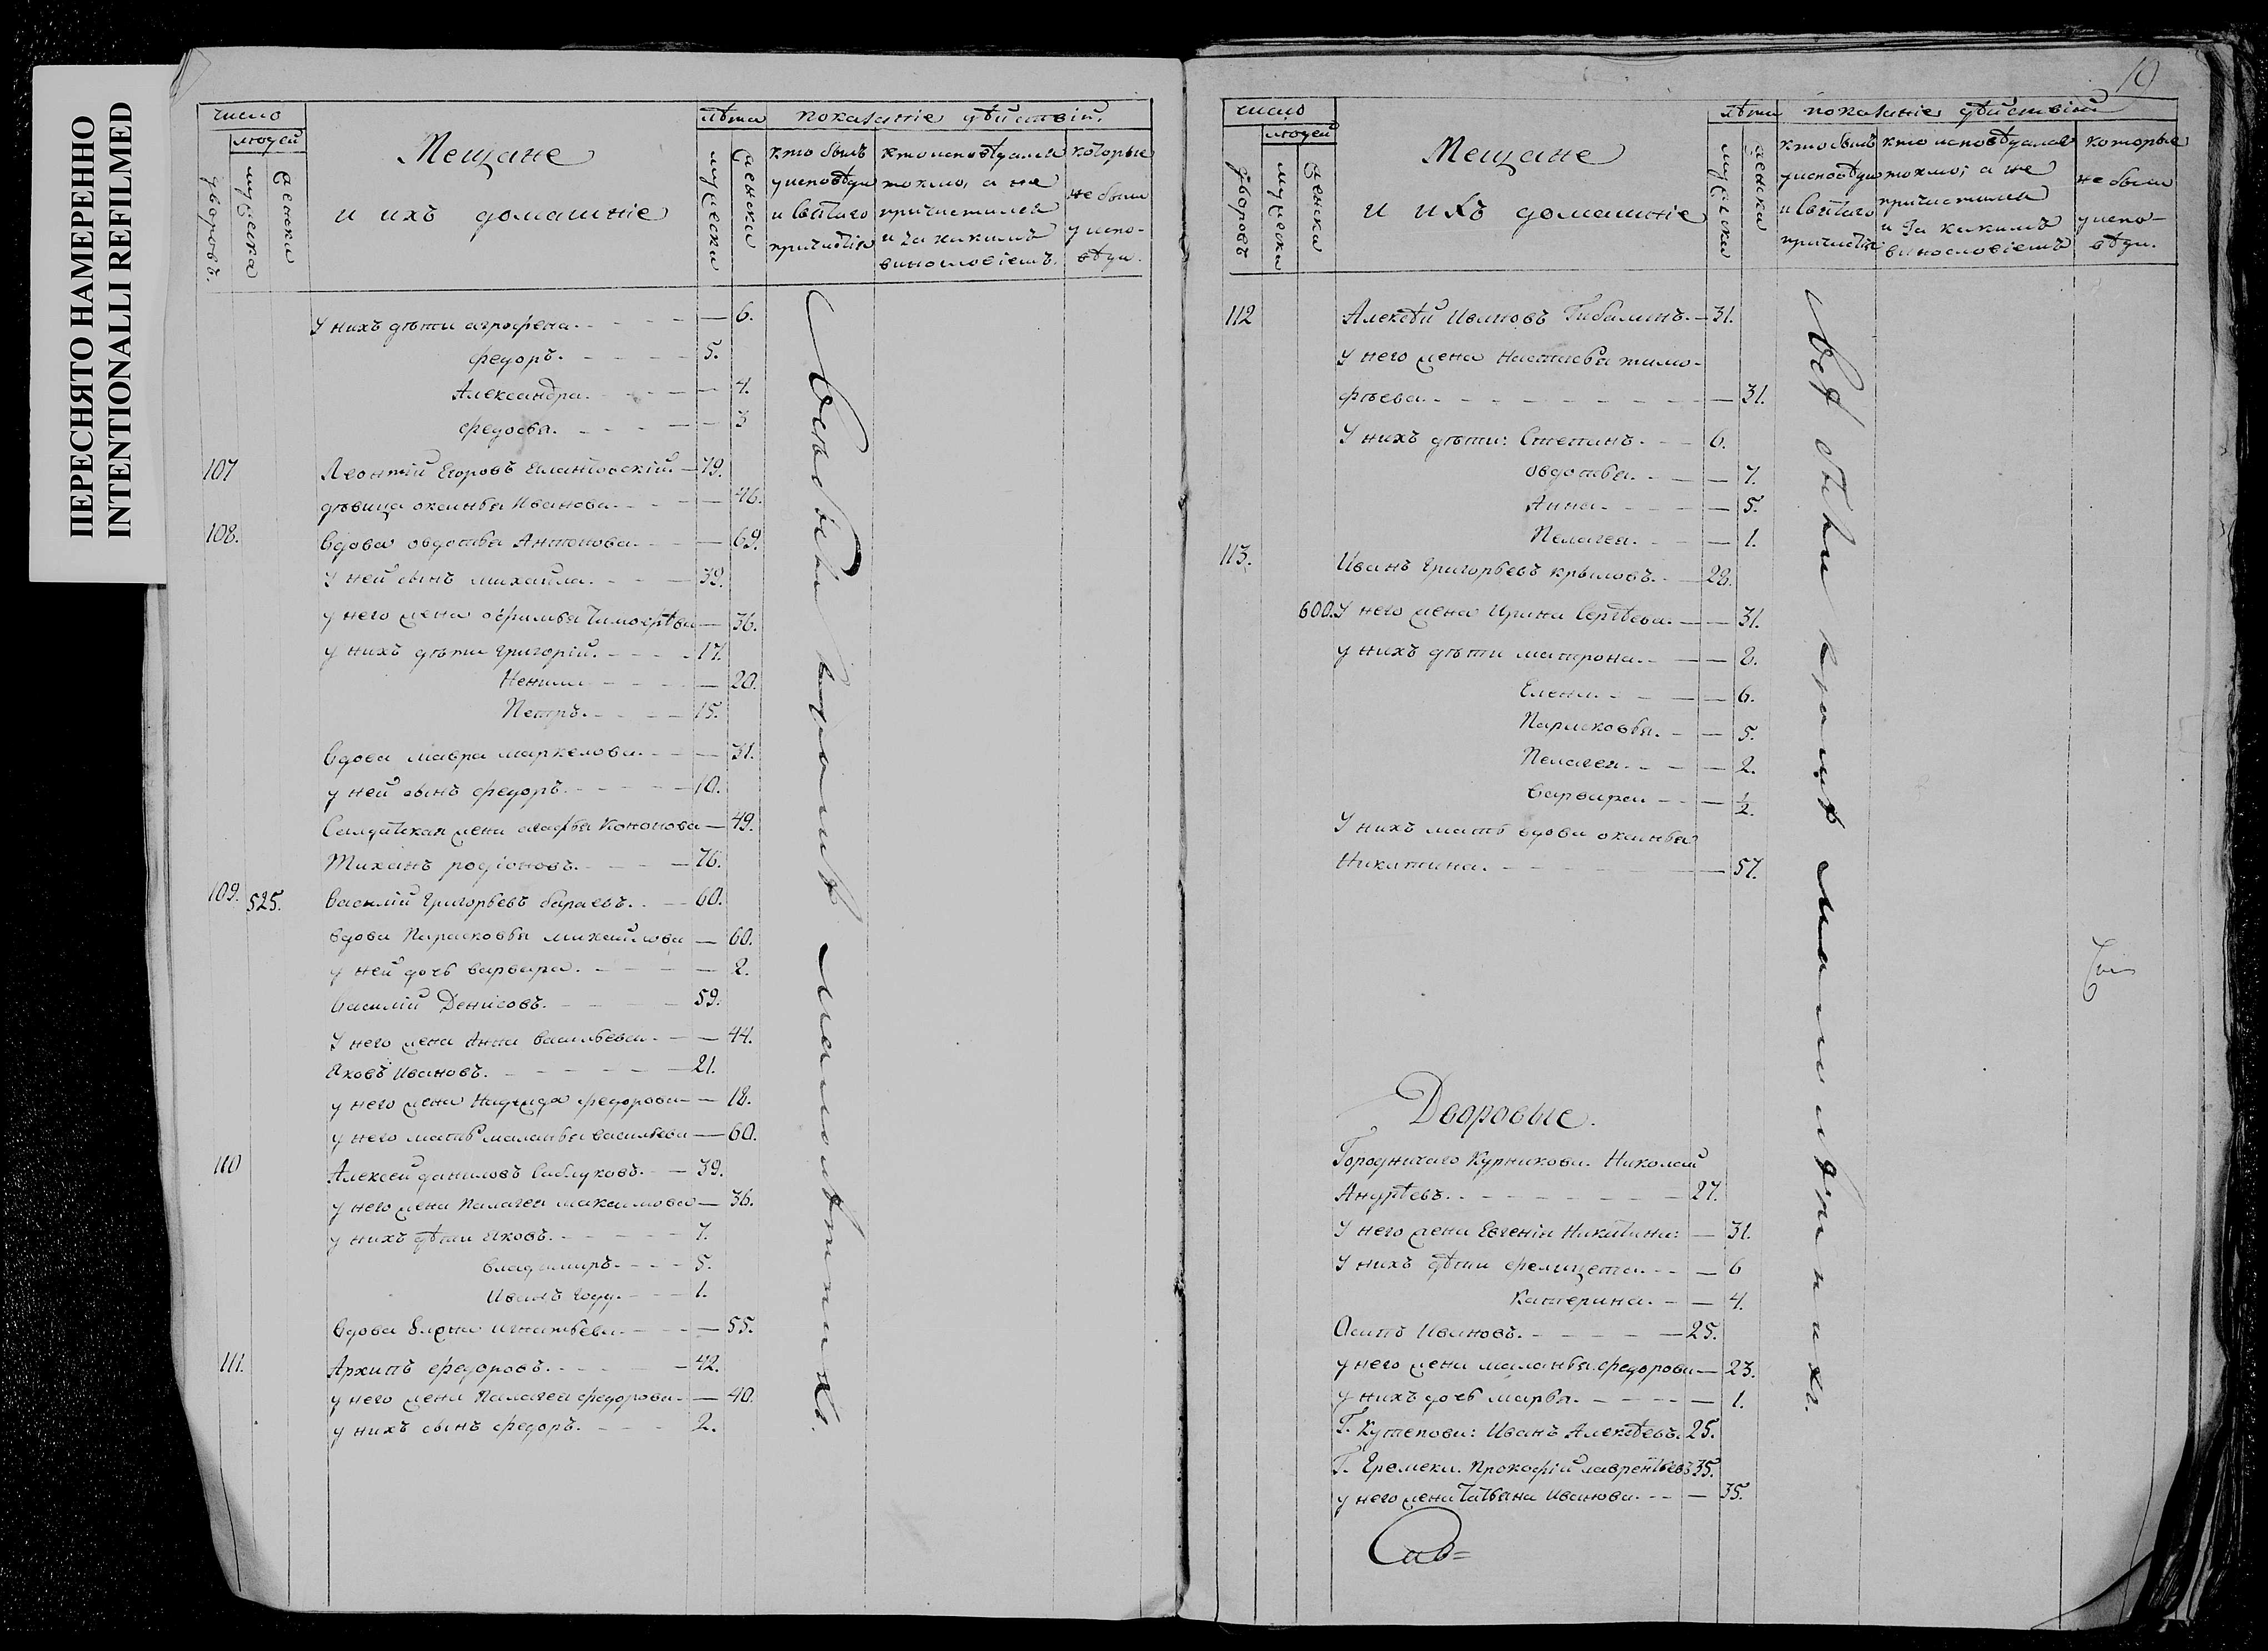 ПЕРЕСНЯТО НАМЕРЕННО
INTENTIONALLI REFILMED
число
людей
дворовъ.
мужеска
женска
Мещане
и ихъ домашніе
лѣта
мужеска
женска
показаніе дѣйствій.
кто былъ у исповѣди и Святаго причастія
кто исповѣдался токмо, а не причастился и за какимъ винословіемъ.
которые не были у исповѣди.
У нихъ дѣти агрофена. — 6.
федоръ. 5.
Александра. — 4.
федосья. — 3
107 Леонтій Егоровъ 79.
дѣвица оксинья Иванова. — 46.
108. Вдова овдотья Антонова. — 69.
У ней сынъ михайла. 39.
у него жена Тимофѣева — 36.
у нихъ дѣти григорій. 17.
Ненила — 20.
Петръ. 15.
Вдова мавра маркелова. — 31.
у ней сынъ федоръ. 10.
Салдатская жена агафья Кононова — 49.
Тихонъ родіоновъ. 76.
109. 525. Василій григорьевъ бараевъ. 60.
вдова Парасковья михайлова — 60.
у ней дочь варвара. — 2.
Василій Денисовъ. 59.
У него жена Анна васильева. — 44.
Яковъ Ивановъ. 21.
у него жена Надежда федорова — 18.
у него мать маланья васильева — 60.
110 Алексей даниловъ Саблуковъ. 39.
у него жена Палагея максимова — 36.
у нихъ дѣти яковъ. 7.
владимиръ. 5.
Иванъ году. 1.
Вдова Елена игнатьева. — 55.
111. Архипъ федоровъ. 42.
у него жена Палагея федорова. — 40.
у нихъ сынъ федоръ. 2.
Всѣ были кромѣ малолѣтнихъ.
19
число
людей
дворовъ
мужеска
женска
Мещане
и ихъ домашніе
лѣта
мужеска
женска
показаніе дѣйствій
кто былъ у исповѣди и Святаго причастія
кто исповѣдался токмо, а не причастился и за какимъ винословіемъ
которые не были у исповѣди.
112 Алексѣй Ивановъ Гибалинъ. 31.
У него жена Настасья тимо-
фѣева. — 31.
У нихъ дѣти: Степанъ. 6.
овдотья. — 7.
Анна. — 5.
Пелагея. — 1.
113. Иванъ григорьевъ крыловъ. 28.
600. У него жена Ирина Сергѣева. — 31.
у нихъ дѣти матрона. — 8.
Елена. — 6.
Парасковья. — 5.
Пелагея. — 2.
варвара — 1/2.
У нихъ мать вдова оксинья
Никитина. — 57.
Дворовые.
Городничаго Курникова. Николай
Андрѣевъ. 27.
У него жена Евгенія Никитина: — 31.
У нихъ дѣти фелицата. — 6
Катерина. — 4.
Осипъ Ивановъ. 25.
у него жена маланья федорова — 23.
у нихъ дочь марья. — 1.
Г. Кутепова: Иванъ Алексѣевъ. 25.
Г. Еремека. Прокофій лаврентьевъ 35.
у него жена Татьяна Иванова. — 35.
Всѣ были кромѣ малолѣтнихъ.